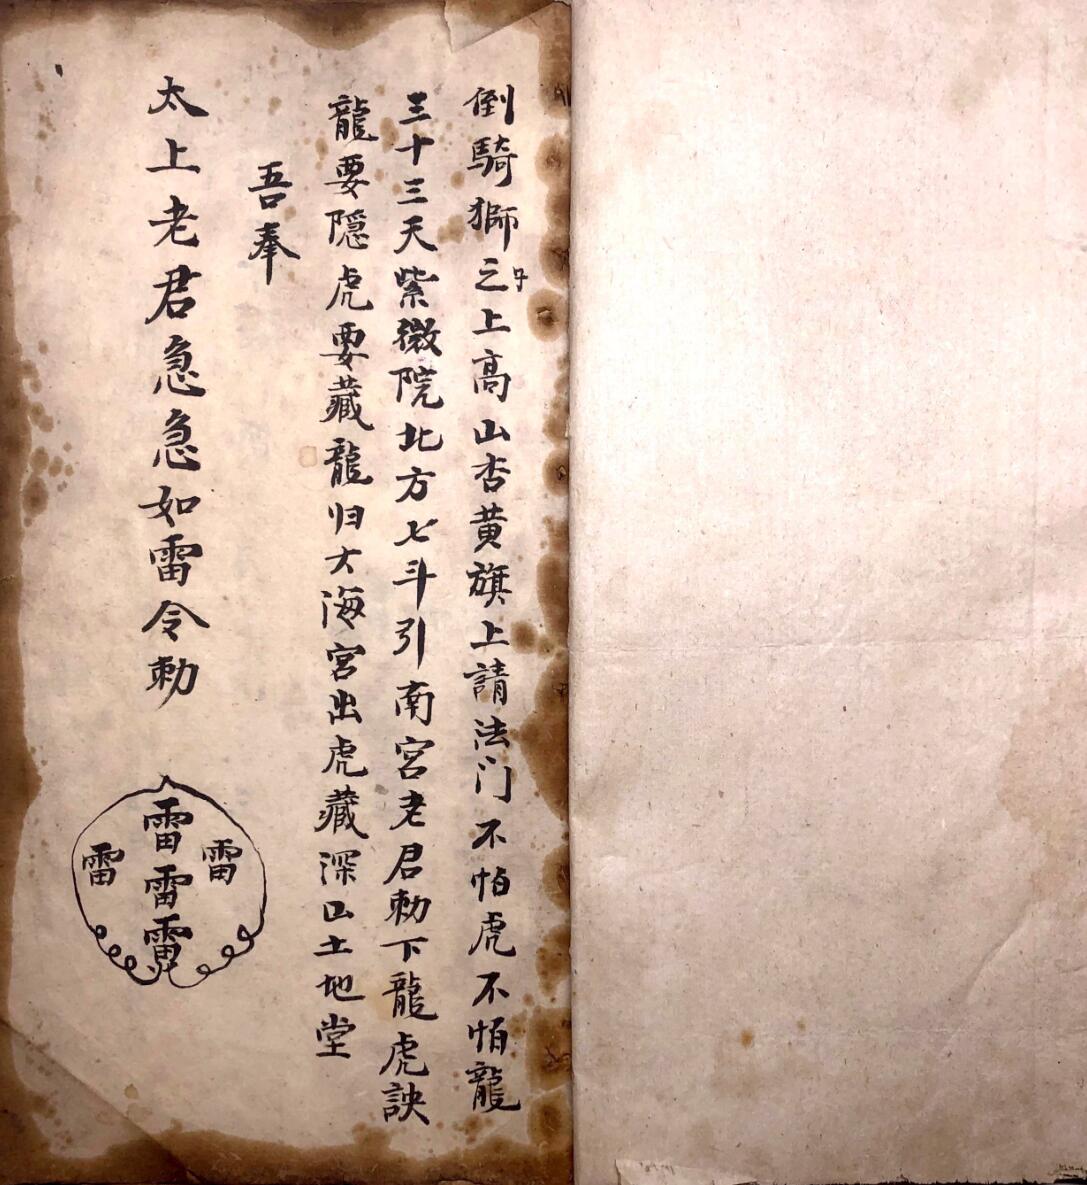 倒騎獅子之上高山杏黄旗上請法门不怕虎不怕龍
三十三天紫微院北方七斗引南宮老君勅下龍虎訣
龍要隐虎要藏龍归大海宮出虎藏深山土地堂
吾奉
太上老君急急如雷令勅
雷
雷 雷
雷
雷